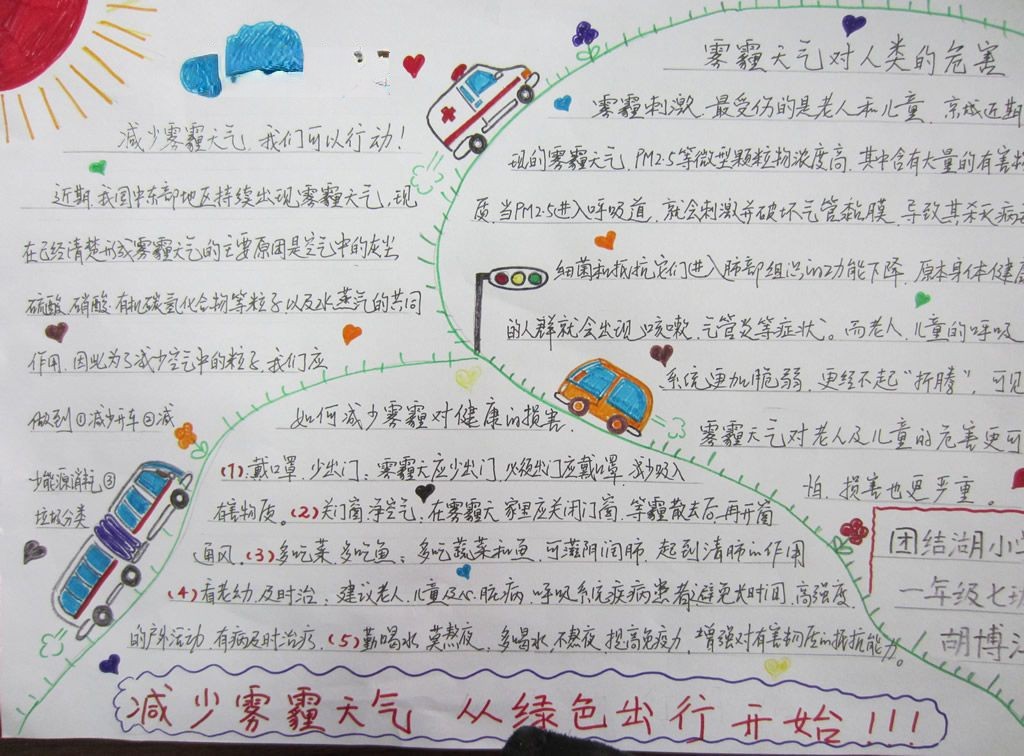 减少雾霾天气，我们可以行动！
近期，我国中东部地区持续出现雾霾天气，现
在已经清楚形成雾霾天气的主要原因是空气中的灰尘
硫酸、硝酸、有机碳氢化合物等粒子以及水蒸气的共同
作用，因此为了减少空气中的粒子，我们应
做到①减少开车②减
少能源消耗③
垃圾分类
雾霾天气对人类的危害
雾霾刺激，最受伤的是老人和儿童，京城近期
现的雾霾天气，PM2.5等微型颗粒物浓度高，其中含有大量的有害物
质，当PM2.5进入呼吸道，就会刺激并破坏气管黏膜，导致其杀灭病
细菌和抵抗它们进入肺部组织的功能下降，原本身体健康
的人群就会出现咳嗽、气管炎等症状。而老人、儿童的呼吸
系统更加脆弱，更经不起“折腾”，可见
雾霾天气对老人及儿童的危害更可
怕，损害也更严重。
如何减少雾霾对健康的损害.
(1).戴口罩，少出门：雾霾天应少出门，必须出门应戴口罩，减少吸入
有害物质。(2)关门窗净空气：在雾霾天，家里应关闭门窗，等霾散去后，再开窗
通风。(3)多吃菜，多吃鱼：多吃蔬菜和鱼，可滋阴润肺，起到清肺的作用
(4)看老幼，及时治：建议老人、儿童及心脏病、呼吸系统疾病患者避免长时间、高强度
的户外活动，有病及时治疗，(5)勤喝水，莫熬夜，多喝水，不熬夜，提高免疫力，增强对有害物质的抵抗能力。
团结湖小学
一年级七班
胡博
减少雾霾天气 从绿色出行开始!!!